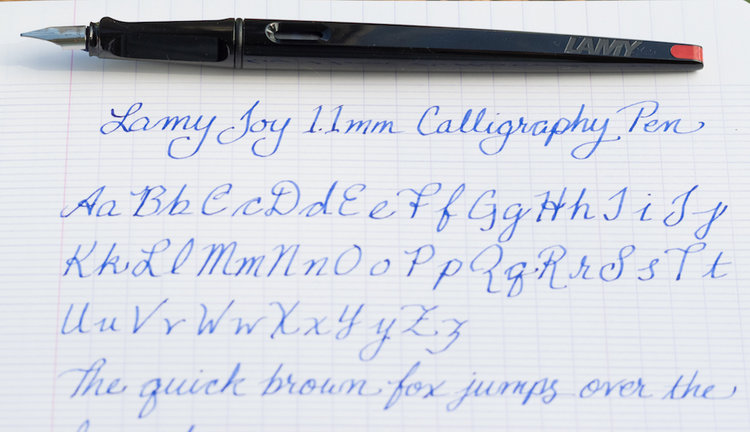 LAMY
Lamy Joy 1.1mm Calligraphy Pen
Aa Bb Cc Dd Ee Ff Gg Hh Ii Jj
Kk Ll Mm Nn Oo Pp Qq Rr Ss Tt
Uu Vv Ww Xx Yy Zz
The quick brown fox jumps over the